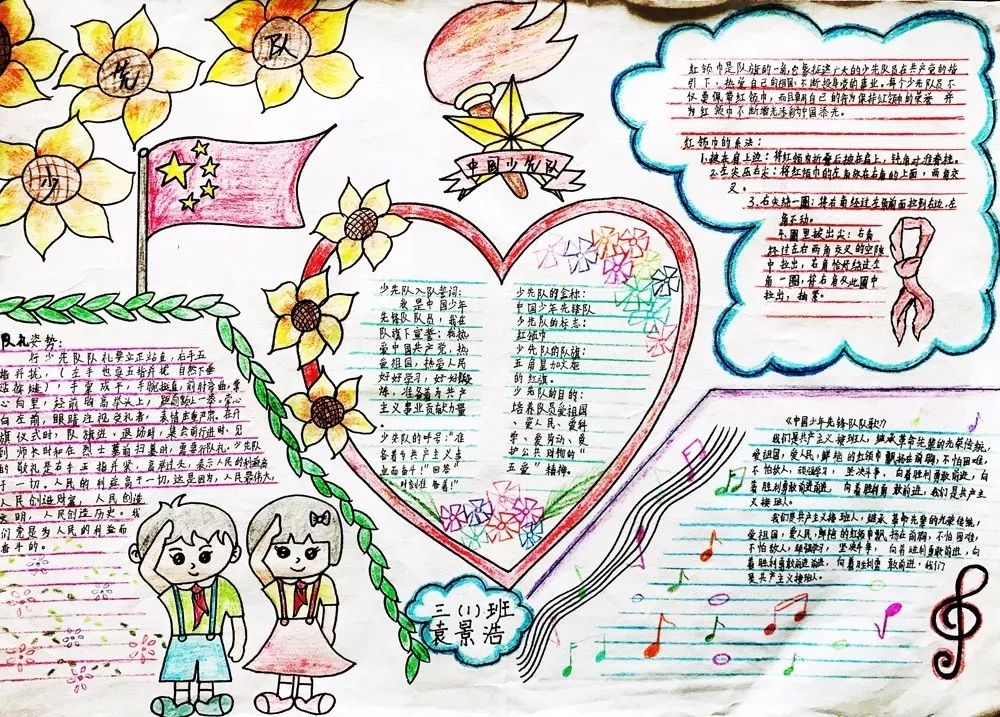 少
先
队
中国少先队
红领巾是队旗的一角,它象征这广大的少先队员在共产党的指
引下,热爱自己的祖国,不断投身党的事业,每个少先队员不
仅要佩戴红领巾,而且要用自己的行为保持红领巾的荣誉 并
为红领巾不断增光添彩中国添光。
红领巾的系法:
1.披在肩上边:将红领巾折叠后披在肩上,钝角对准脊柱。
2.左尖压右尖:将红领巾的左角放在右角的上面,两角交
叉。
3.右尖绕一圈:将右角经过左角前面拉到右边.左
角不动。
4.圈里拔出尖:右角
经过左右两角交叉的空隙
中拉出,右角恰好绕过左
角一圈;将右角从此圈中
拉出,抽紧。
少先队入队誓词:
我是中国少年
先锋队队员,我在
队旗下宣誓:我热
爱中国共产党,热
爱祖国,热爱人民
好好学习,好好锻
炼,准备着为共产
主义事业贡献力量
。
少先队的呼号:"准
备着为共产主义事
业而奋斗!"回答:
"时刻准备着!"
少先队的全称:
中国少年先锋队
少先队的标志:
红领巾
少先队的队旗:
五角星加火炬
的红旗。
少先队的目的:
培养队员爱祖国
、爱人民、爱科
学、爱劳动、爱
护公共财物的"
五爱"精神。
队礼姿势:
行少先队队礼要立正站直,右手五
指并拢,(左手也要五指并拢 自然下垂
手掌成平,手腕挺直,前肘弯曲,掌
心向里,经前胸高举头上,距离额上一拳,掌心
向左前,眼睛注视受礼者,表情庄重严肃。在升
旗仪式时,队旗进、退场时,集会前行进时、见
到师长时和在烈士墓前扫墓时,需要行队礼。少先队
的敬礼是右手五指并紧,高举过头,表示人民的利益高
于一切,人民的利益高于一切,这是因为,人民最伟大,
人民创造财富,人民创造
文明,人民创造历史。我
们党是为人民的利益而
奋斗的。
三(1)班
袁景浩
《中国少年先锋队队歌》
我们是共产主义接班人,继承革命先辈的光荣传统,
爱祖国,爱人民,鲜艳的红领巾飘扬在前胸,不怕困难,
不怕敌人,顽强学习,坚决斗争,向着胜利勇敢前进,向
着胜利勇敢前进前进,向着胜利勇敢前进,我们是共产主
义接班人。
我们是共产主义接班人,继承革命先辈的光荣传统,
爱祖国,爱人民,鲜艳的红领巾飘扬在前胸,不怕困难,
不怕敌人,顽强学习,坚决斗争,向着胜利勇敢前进,向
着胜利勇敢前进前进,向着胜利勇敢前进,我们
是共产主义接班人。